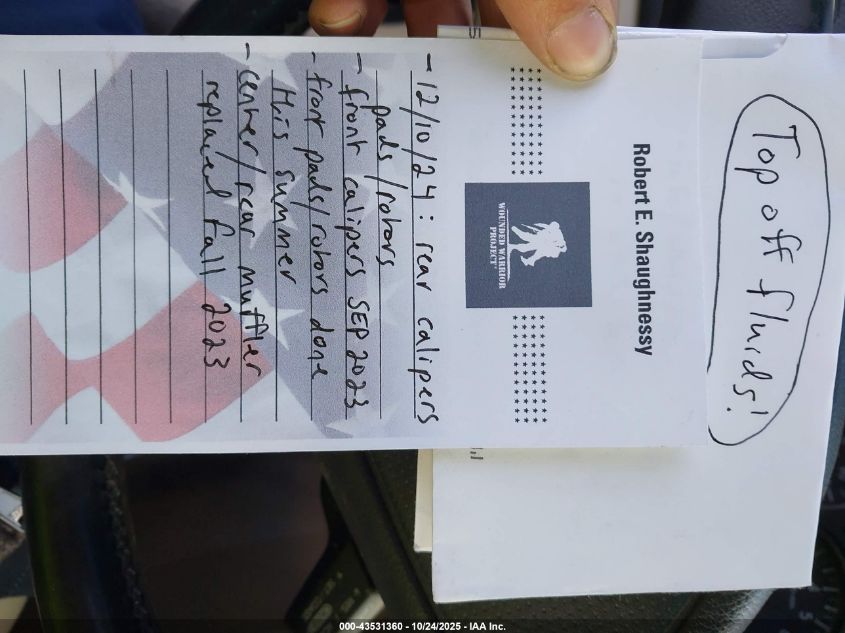 Top off fluids!
Robert E. Shaughnessy
WOUNDED WARRIOR
PROJECT
- 12/10/24: rear calipers
pads/rotors
- front calipers SEP 2023
- front pads/rotors done
this summer
- center/rear muffler
replaced fall 2023
000-43531360 - 10/24/2025 - IAA Inc.